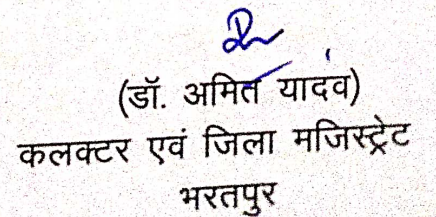 (डॉ. अमित यादव)
कलक्टर एवं जिला मजिस्ट्रेट
भरतपुर